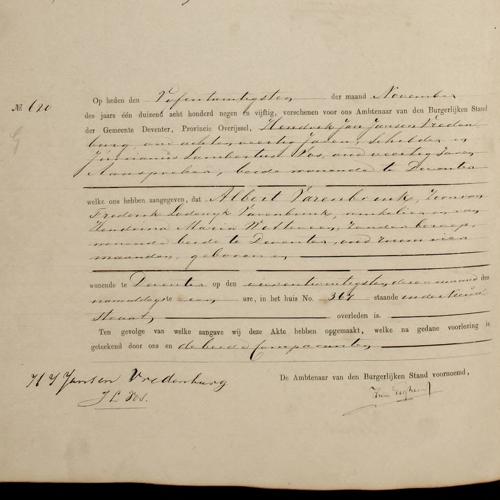 № 620 Op heden den Vijfentwintigsten der maand November
des jaars één duizend acht honderd negen en vijftig, verschenen voor ons Ambtenaar van den Burgerlijken Stand
der Gemeente Deventer, Provincie Overijssel, Hendrik Jan Jansen Vreden
burg, oud achtenveertig Jaren, Schilder en
Lambertus Vos, oud veertig Jaren
Aanspreker, beide wonende te Deventer
welke ons hebben aangegeven, dat Albert Varenbrink, Zoon van
Frederik Lodewyk Varenbrink, winkelier en van
Hendrina Maria zonder beroep,
wonende beide te Deventer, oud ruim vier
maanden, geboren en
wonende te Deventer op den vierentwintigsten dezer maand des
namiddags te een ure, in het huis No. 367 staande in de
Straat, overleden is.
Ten gevolge van welke aangave wij deze Akte hebben opgemaakt, welke na gedane voorlezing is
geteekend door ons en de beide Comparanten.
De Ambtenaar van den Burgerlijken Stand voornoemd,
H J Jansen Vredenburg
J L Vos.